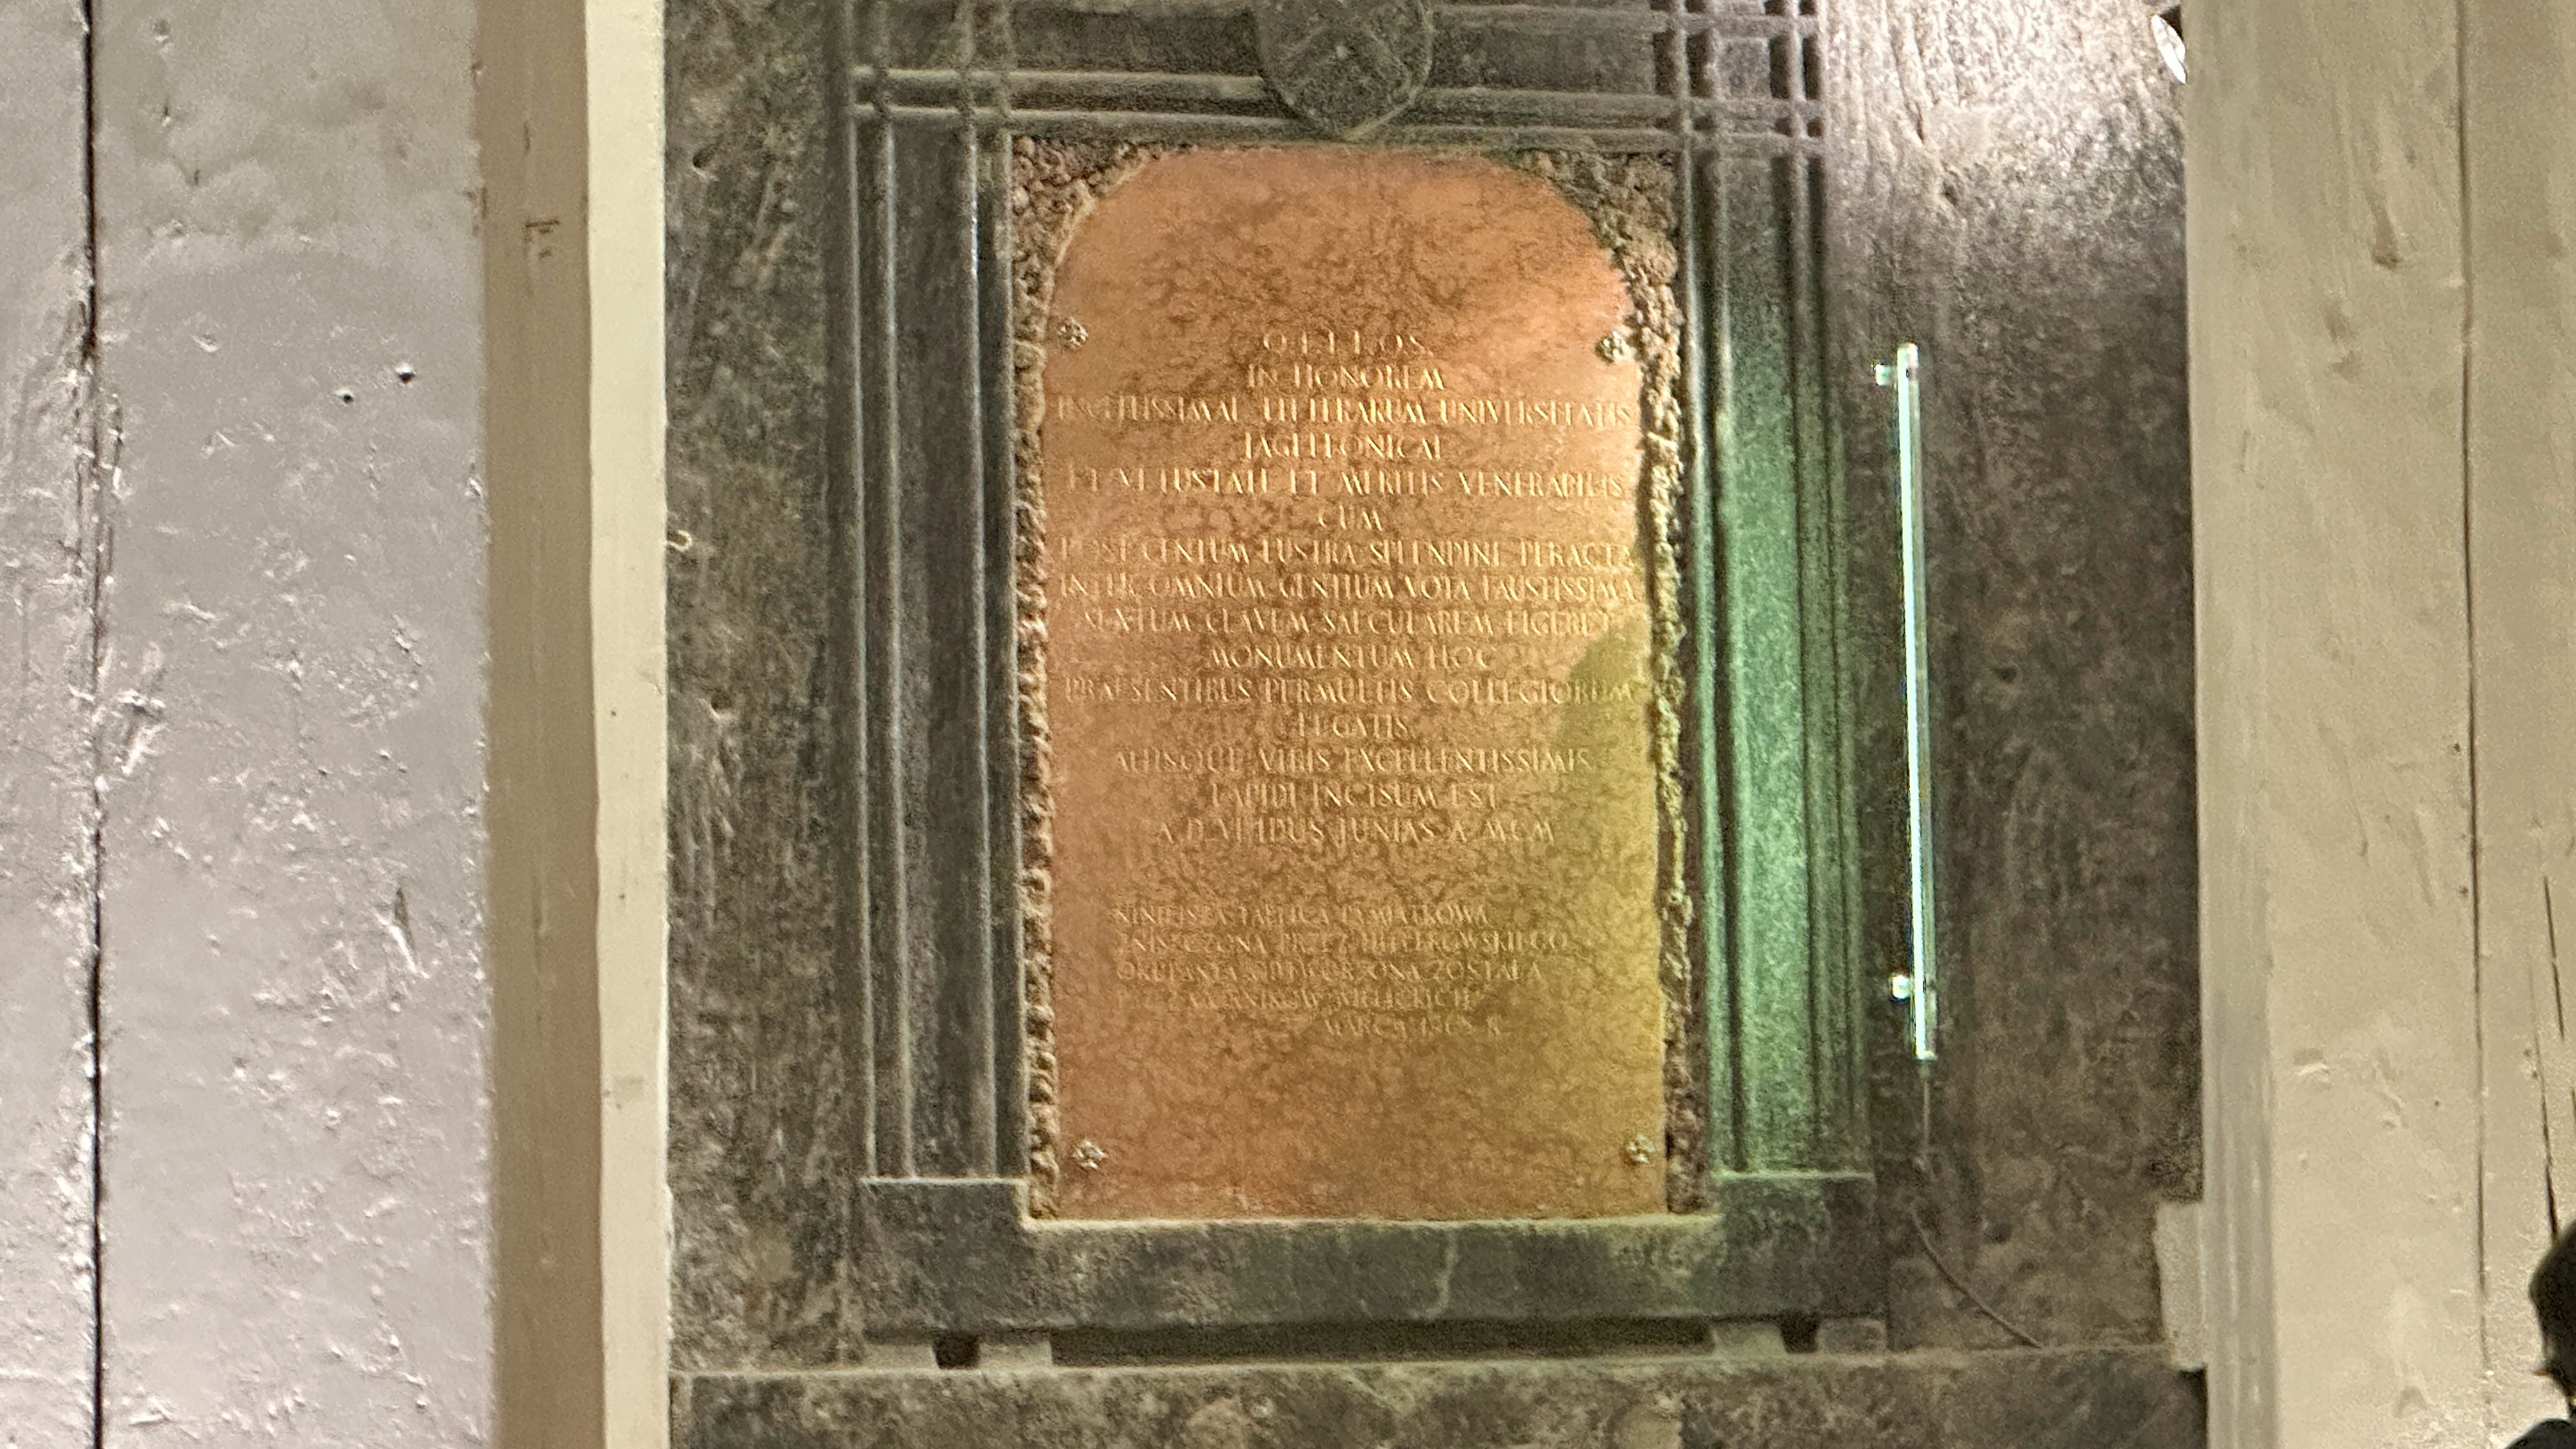 IN HONOREM
INCLITISSIMAE LITTERARUM UNIVERSITATIS
JAGELLONICAE
ET VETUSTATE ET MERITIS VENERABILIS
CUM
POST CENTUM LUSTRA SPLENDIDE PERACTA
INTER OMNIUM GENTIUM VOTA FAUSTISSIMA
SEXTUM CLAVEM SAECULAREM FIGERET
MONUMENTUM HOC
PRAESENTIBUS PERMULTIS COLLEGIORUM
LEGATIS
ALIISQUE VIRIS EXCELLENTISSIMIS
LAPIDI INCISUM EST
A D VI IDUS JUNIAS A MCM
NINIEJSZA TABLICA PAMIĄTKOWA
ZNISZCZONA PRZEZ HITLEROWSKIEGO
OKUPANTA ODTWORZONA ZOSTAŁA
PRZEZ GÓRNIKÓW WIELICKICH